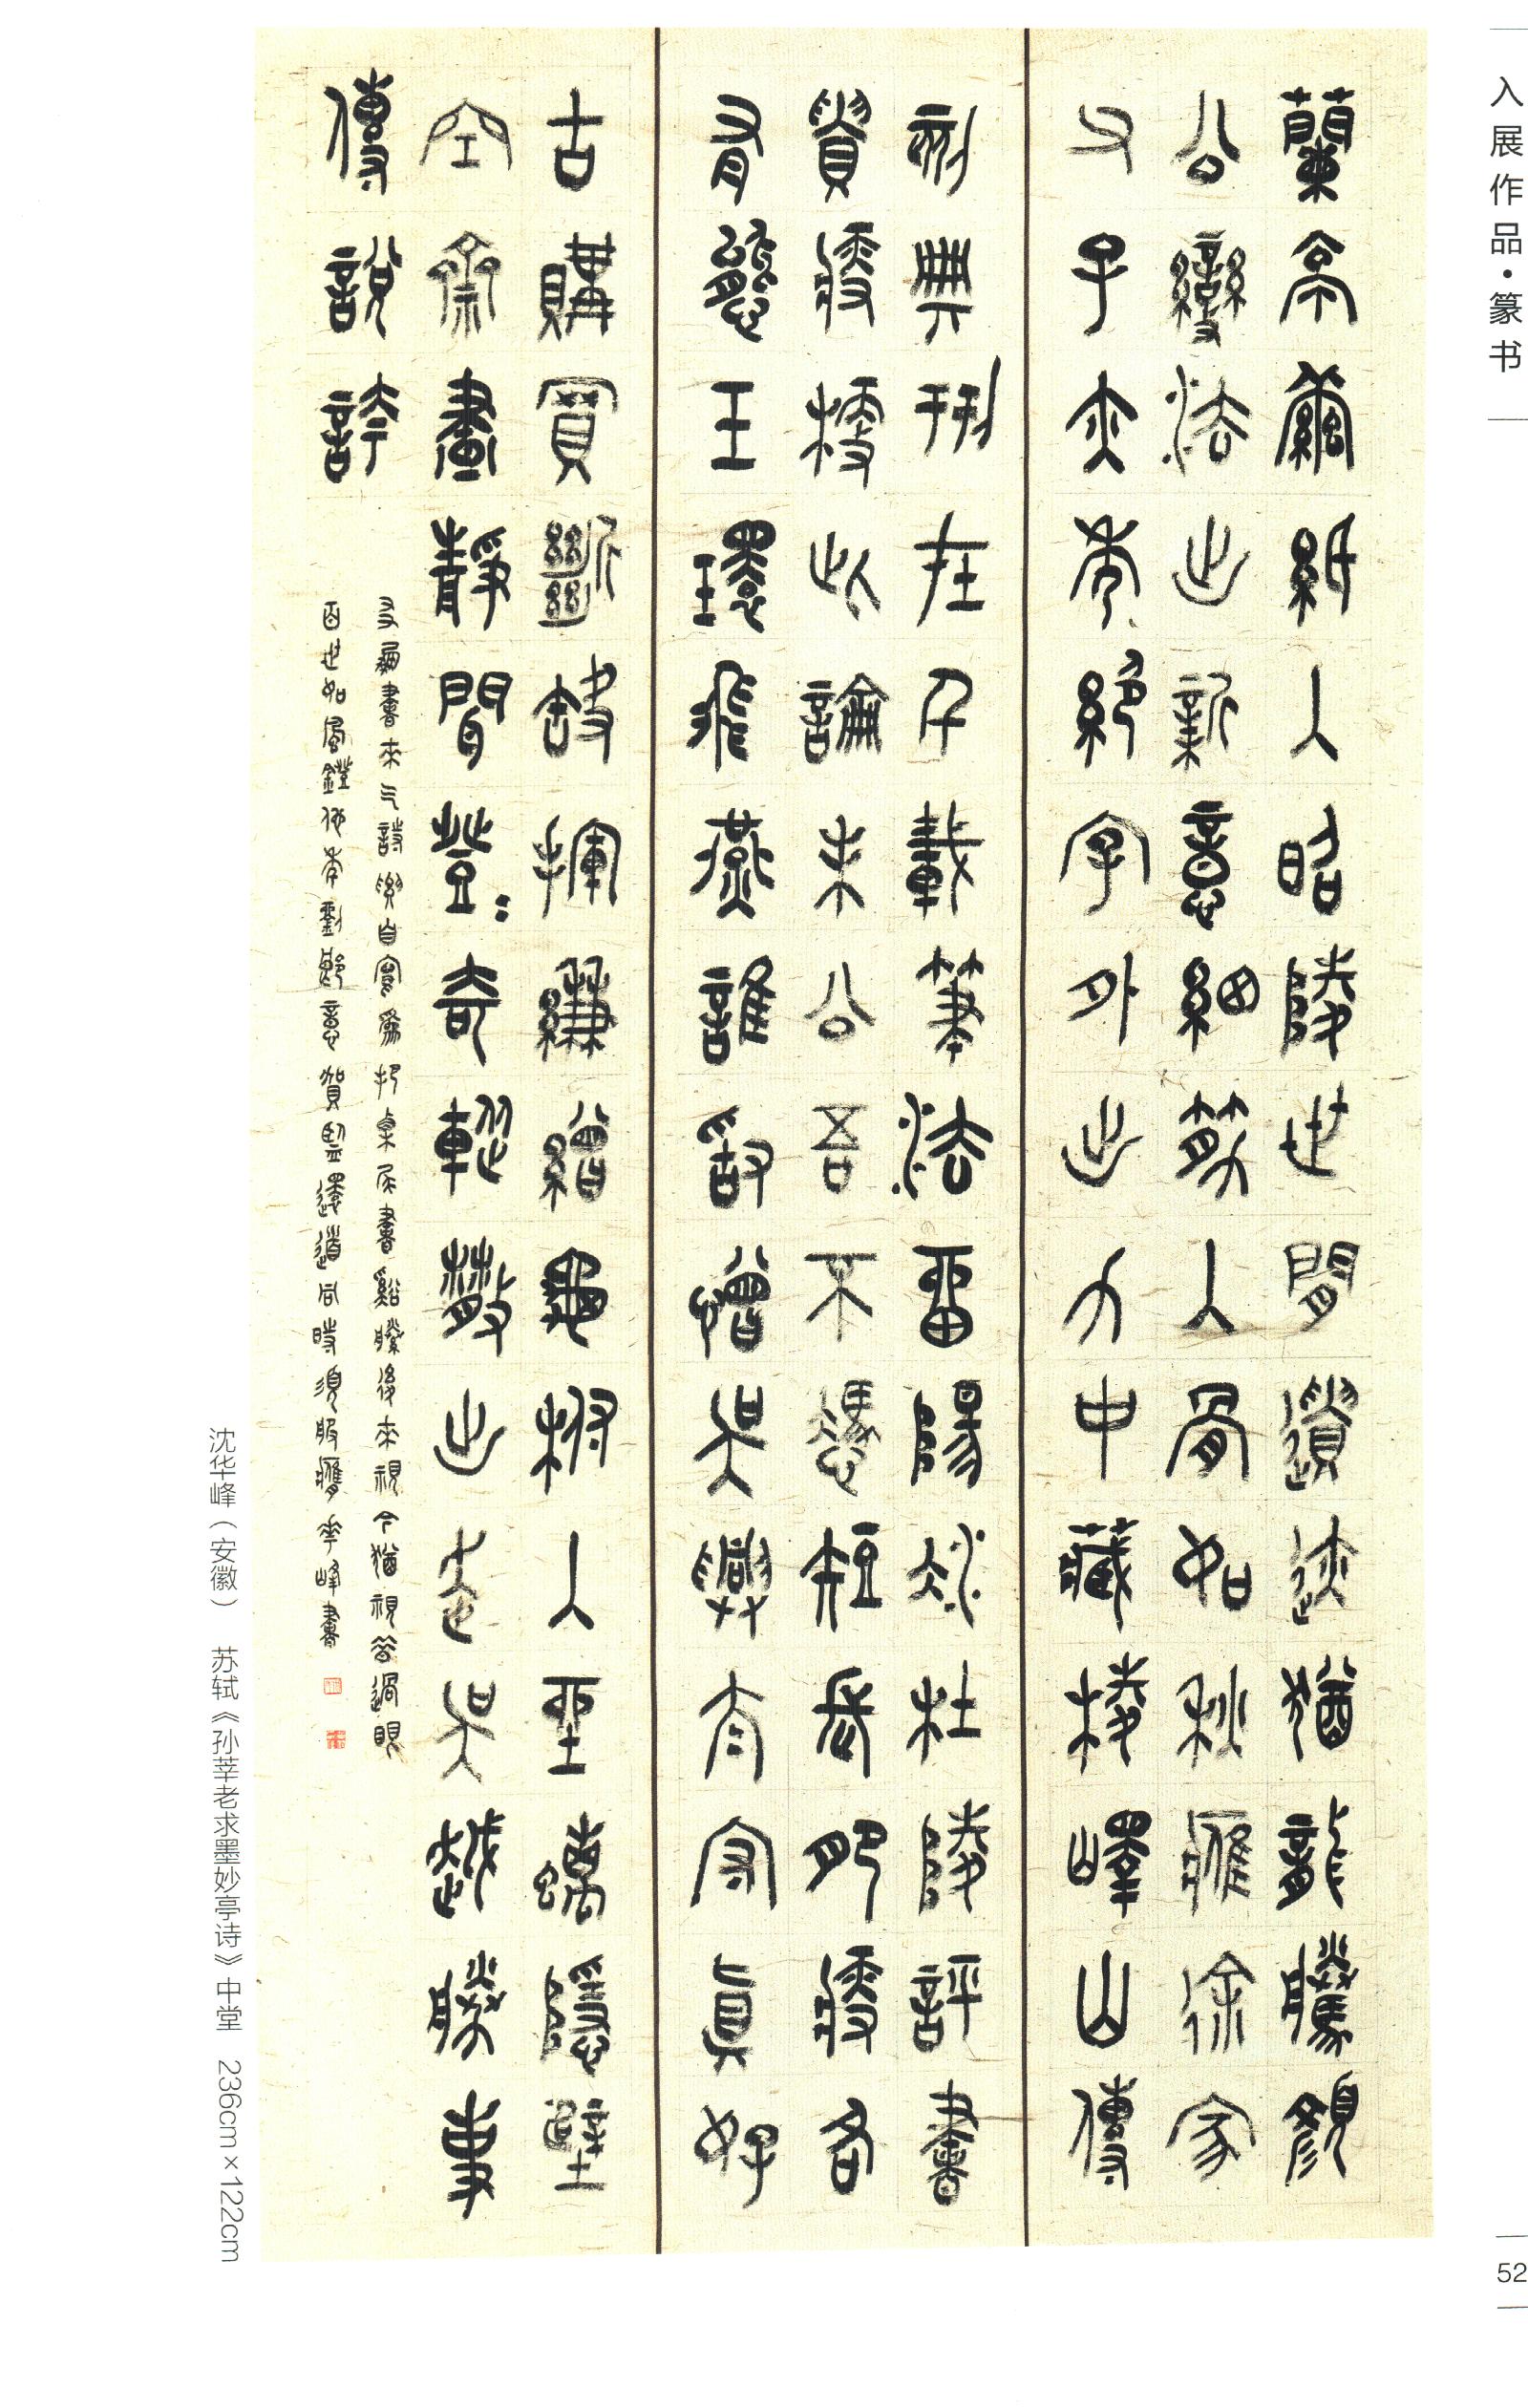 入展作品·篆书
蘭亭繭紙入昭陵世間遺跡猶龍騰顏
公變法出新意細筋入骨如秋鷹徐家
父子亦秀絕字外出力中藏棱嶧山傳
刻典刑在千載筆法留陽冰杜陵評書
貴瘦硬此論未公吾不憑短長肥瘦各
有態玉環飛燕誰敢憎吳興太守真好
古購買斷缺揮縑繒龜趺入坐螭隱壁
空齋晝靜聞登登奇蹤散出走吳越勝事
傳說誇
友朋書來乞詩要自寫爲把栗尾書谿藤後來視今猶視昔過眼
百世如風鐙他年劉郎意賀監還道同時須服膺 華峰書
沈华峰（安徽） 苏轼《孙莘老求墨妙亭诗》中堂 236cm×122cm
52